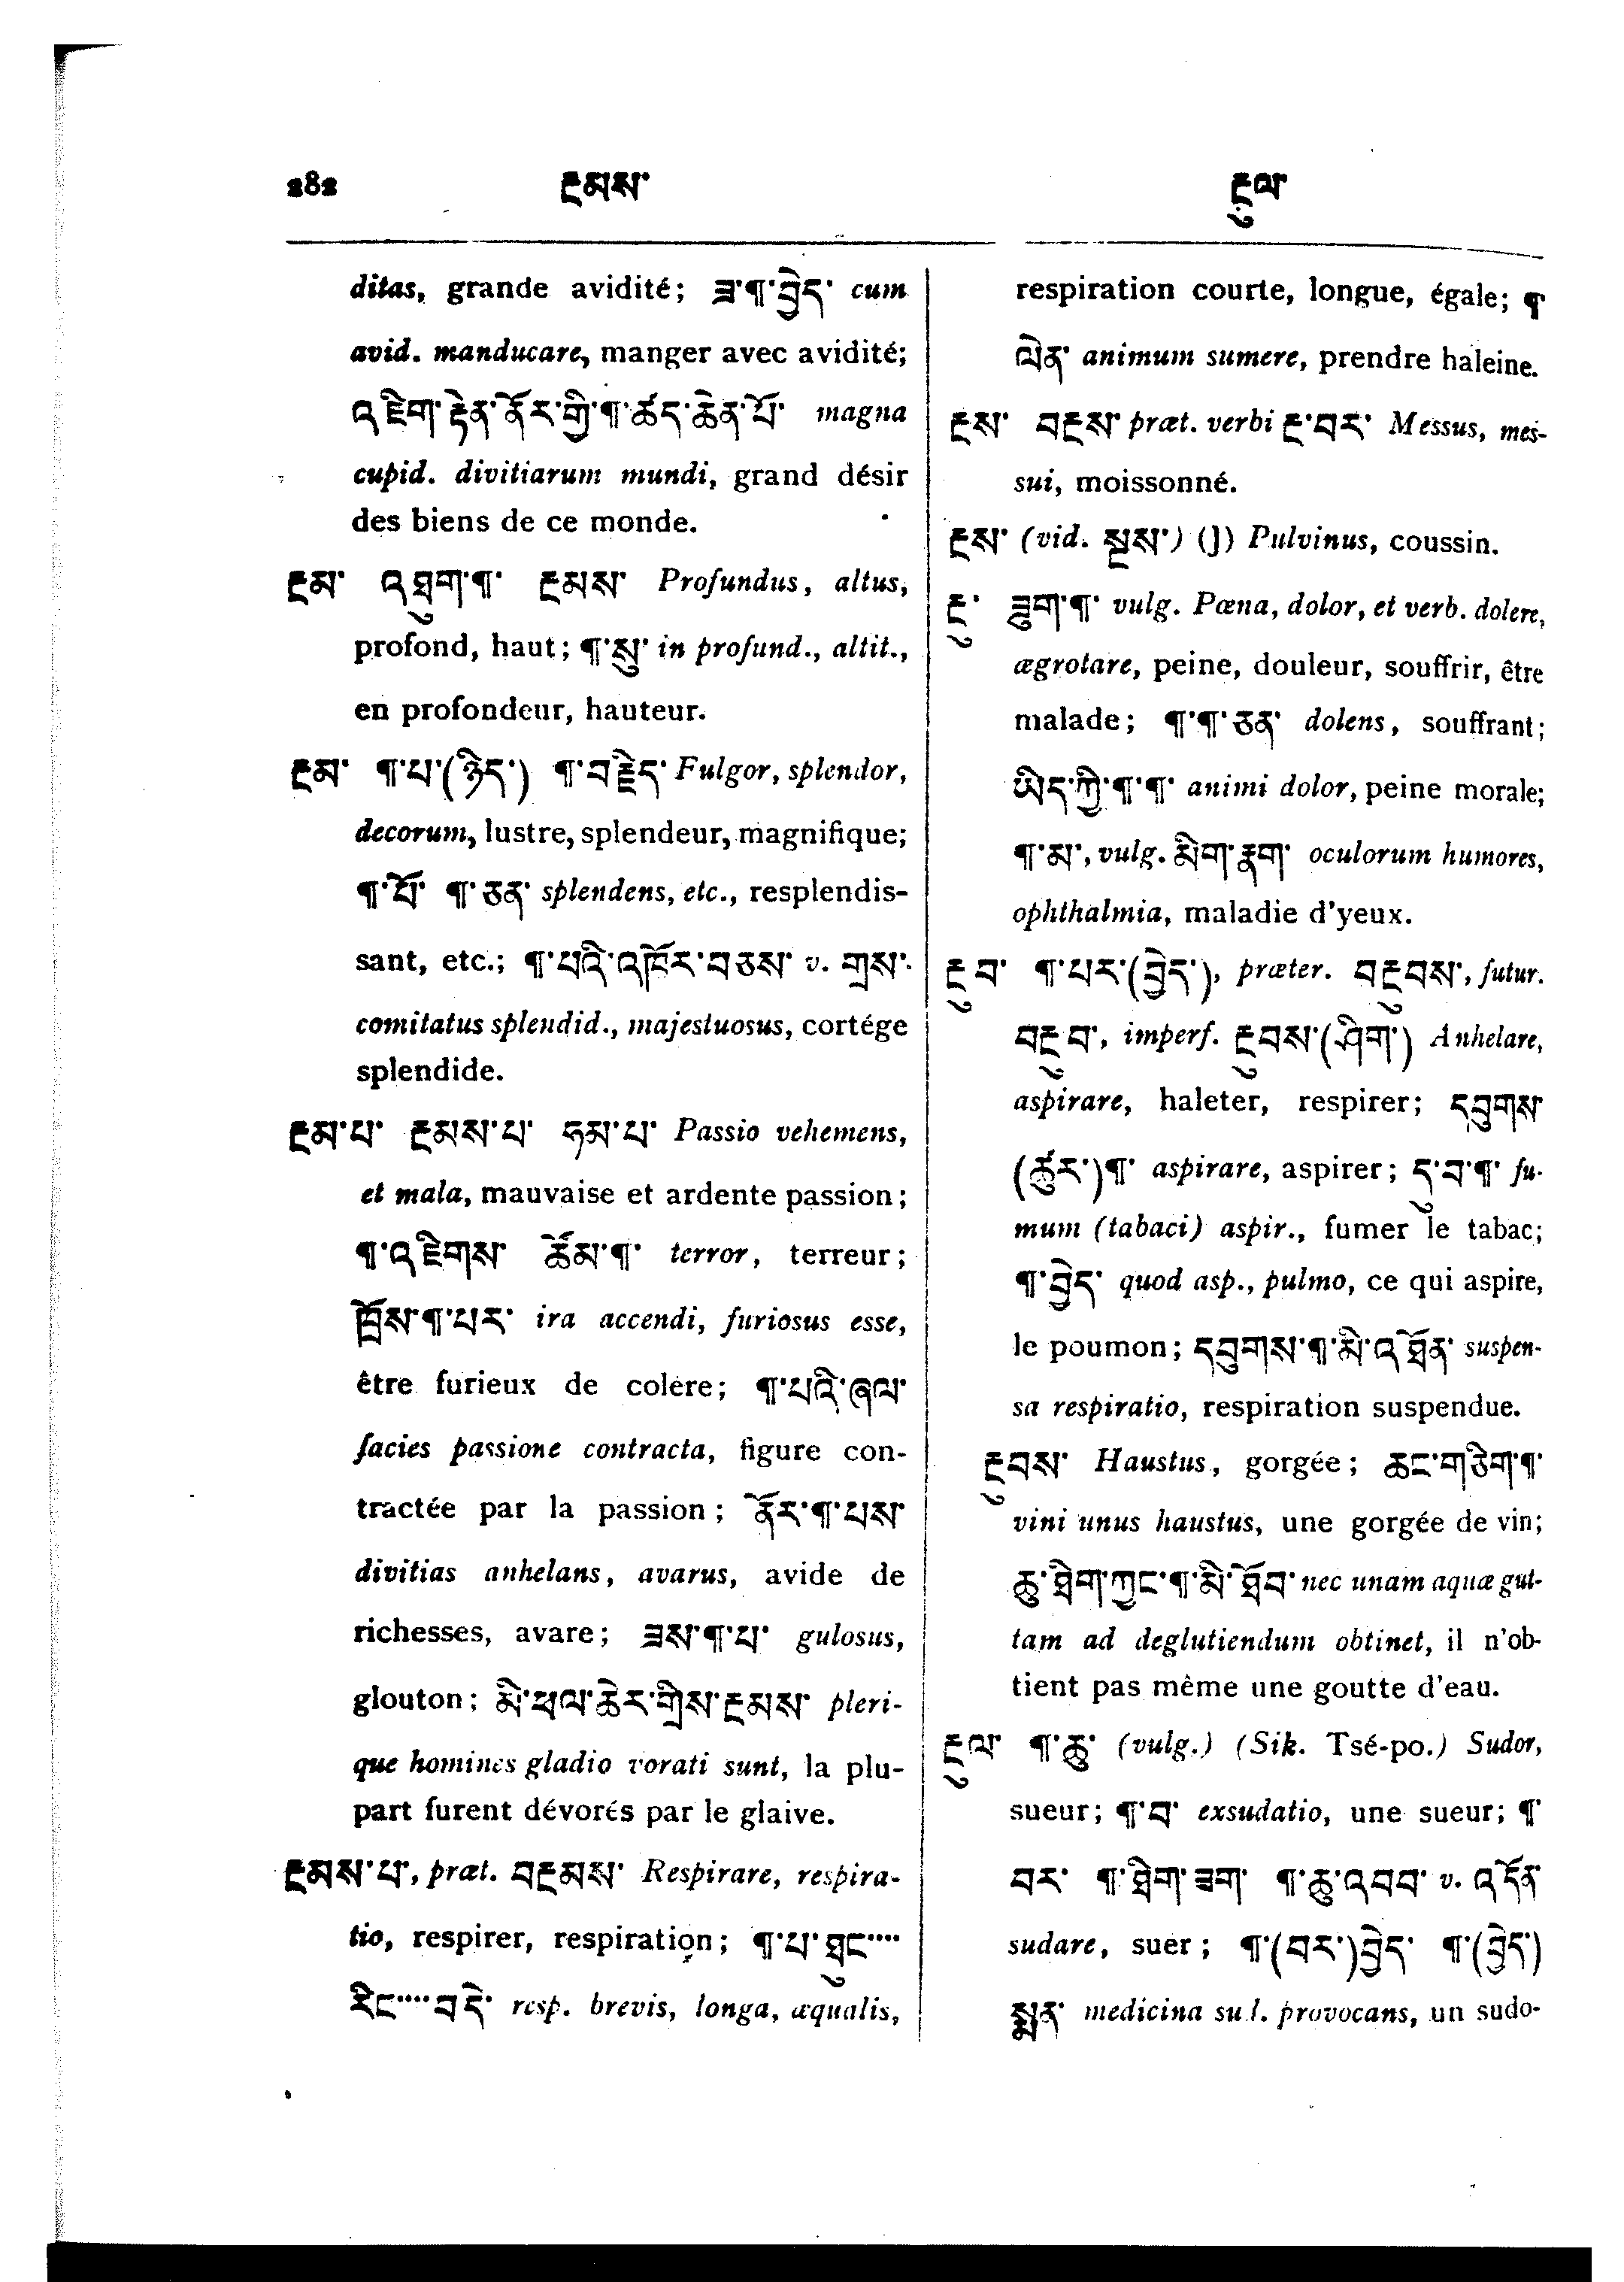 282 རྔམས་ རྔུལ་
ditas, grande avidité; ཟ་¶་བྱེད་ cum
avid. manducare, manger avec avidité;
འཇིག་རྟེན་ནོར་གྱི་¶་ཚད་ཆེན་པོ་ magna
cupid. divitiarum mundi, grand désir
des biens de ce monde.
རྔམ་ འཐུག་¶་ རྔམས་ Profundus, altus,
profond, haut; ¶་སུ་ in profund., altit.,
en profondeur, hauteur.
རྔམ་ ¶་པ་(ཉིད་) ¶་བརྗེད་ Fulgor, splendor,
decorum, lustre, splendeur, magnifique;
¶་པོ་ ¶་ཅན་ splendens, etc., resplendis-
sant, etc.; ¶་པའི་འཁོར་བཅས་ v. གྲས་
comitatus splendid., majestuosus, cortége
splendide.
རྔམ་པ་ རྔམས་པ་ ཧམ་པ་ Passio vehemens,
et mala, mauvaise et ardente passion;
¶་འཇིགས་ ཚོམ་¶་ terror, terreur;
ཁྲོས་¶་པར་ ira accendi, furiosus esse,
être furieux de colère; ¶་པའི་ཞལ་
facies passione contracta, figure con-
tractée par la passion; ནོར་¶་པས་
divitias anhelans, avarus, avide de
richesses, avare; ཟས་¶་པ་ gulosus,
glouton; མི་ཕལ་ཆེར་གྲིས་རྔམས་ pleri-
que homines gladio vorati sunt, la plu-
part furent dévorés par le glaive.
རྔམས་པ་, præt. བརྔམས་ Respirare, respira-
tio, respirer, respiration; ¶་པ་ཐུང་····
རིང་····བདེ་ resp. brevis, longa, æqualis,
respiration courte, longue, égale; ¶་
ལེན་ animum sumere, prendre haleine.
རྔས་ བརྔས་ præt. verbi རྔ་བར་ Messus, mes-
sui, moissonné.
རྔས་ (vid. སྔས་) (J) Pulvinus, coussin.
རྔུ་ ཟུག་¶་ vulg. Pœna, dolor, et verb. dolere,
ægrotare, peine, douleur, souffrir, être
malade; ¶་¶་ཅན་ dolens, souffrant;
ཡིད་ཀྱི་¶་¶་ animi dolor, peine morale;
¶་མ་, vulg. མིག་རྣག་ oculorum humores,
ophthalmia, maladie d'yeux.
རྔུབ་ ¶་པར་(བྱེད་), præter. བརྔུབས་, futur.
བརྔུབ་, imperf. རྔུབས་(ཤིག་) Anhelare,
aspirare, haleter, respirer; དབུགས་
(ཚུར་)¶་ aspirare, aspirer; དུ་བ་¶་ fu-
mum (tabaci) aspir., fumer le tabac;
¶་བྱེད་ quod asp., pulmo, ce qui aspire,
le poumon; དབུགས་¶་མི་འཐོན་ suspen-
sa respiratio, respiration suspendue.
རྔུབས་ Haustus, gorgée; ཆང་གཅིག་¶་
vini unus haustus, une gorgée de vin;
ཆུ་ཐིག་ཀྱང་¶་མི་ཐོབ་ nec unam aquæ gut-
tam ad deglutiendum obtinet, il n'ob-
tient pas même une goutte d'eau.
རྔུལ་ ¶་ཆུ་ (vulg.) (Sik. Tsé-po.) Sudor,
sueur; ¶་བ་ exsudatio, une sueur; ¶་
བར་ ¶་ཐིག་ཟག་ ¶་ཆུ་འབབ་ v. འདོན་
sudare, suer; ¶་(བར་)བྱེད་ ¶་(བྱེད་)
སྨན་ medicina su.l. provocans, un sudo-